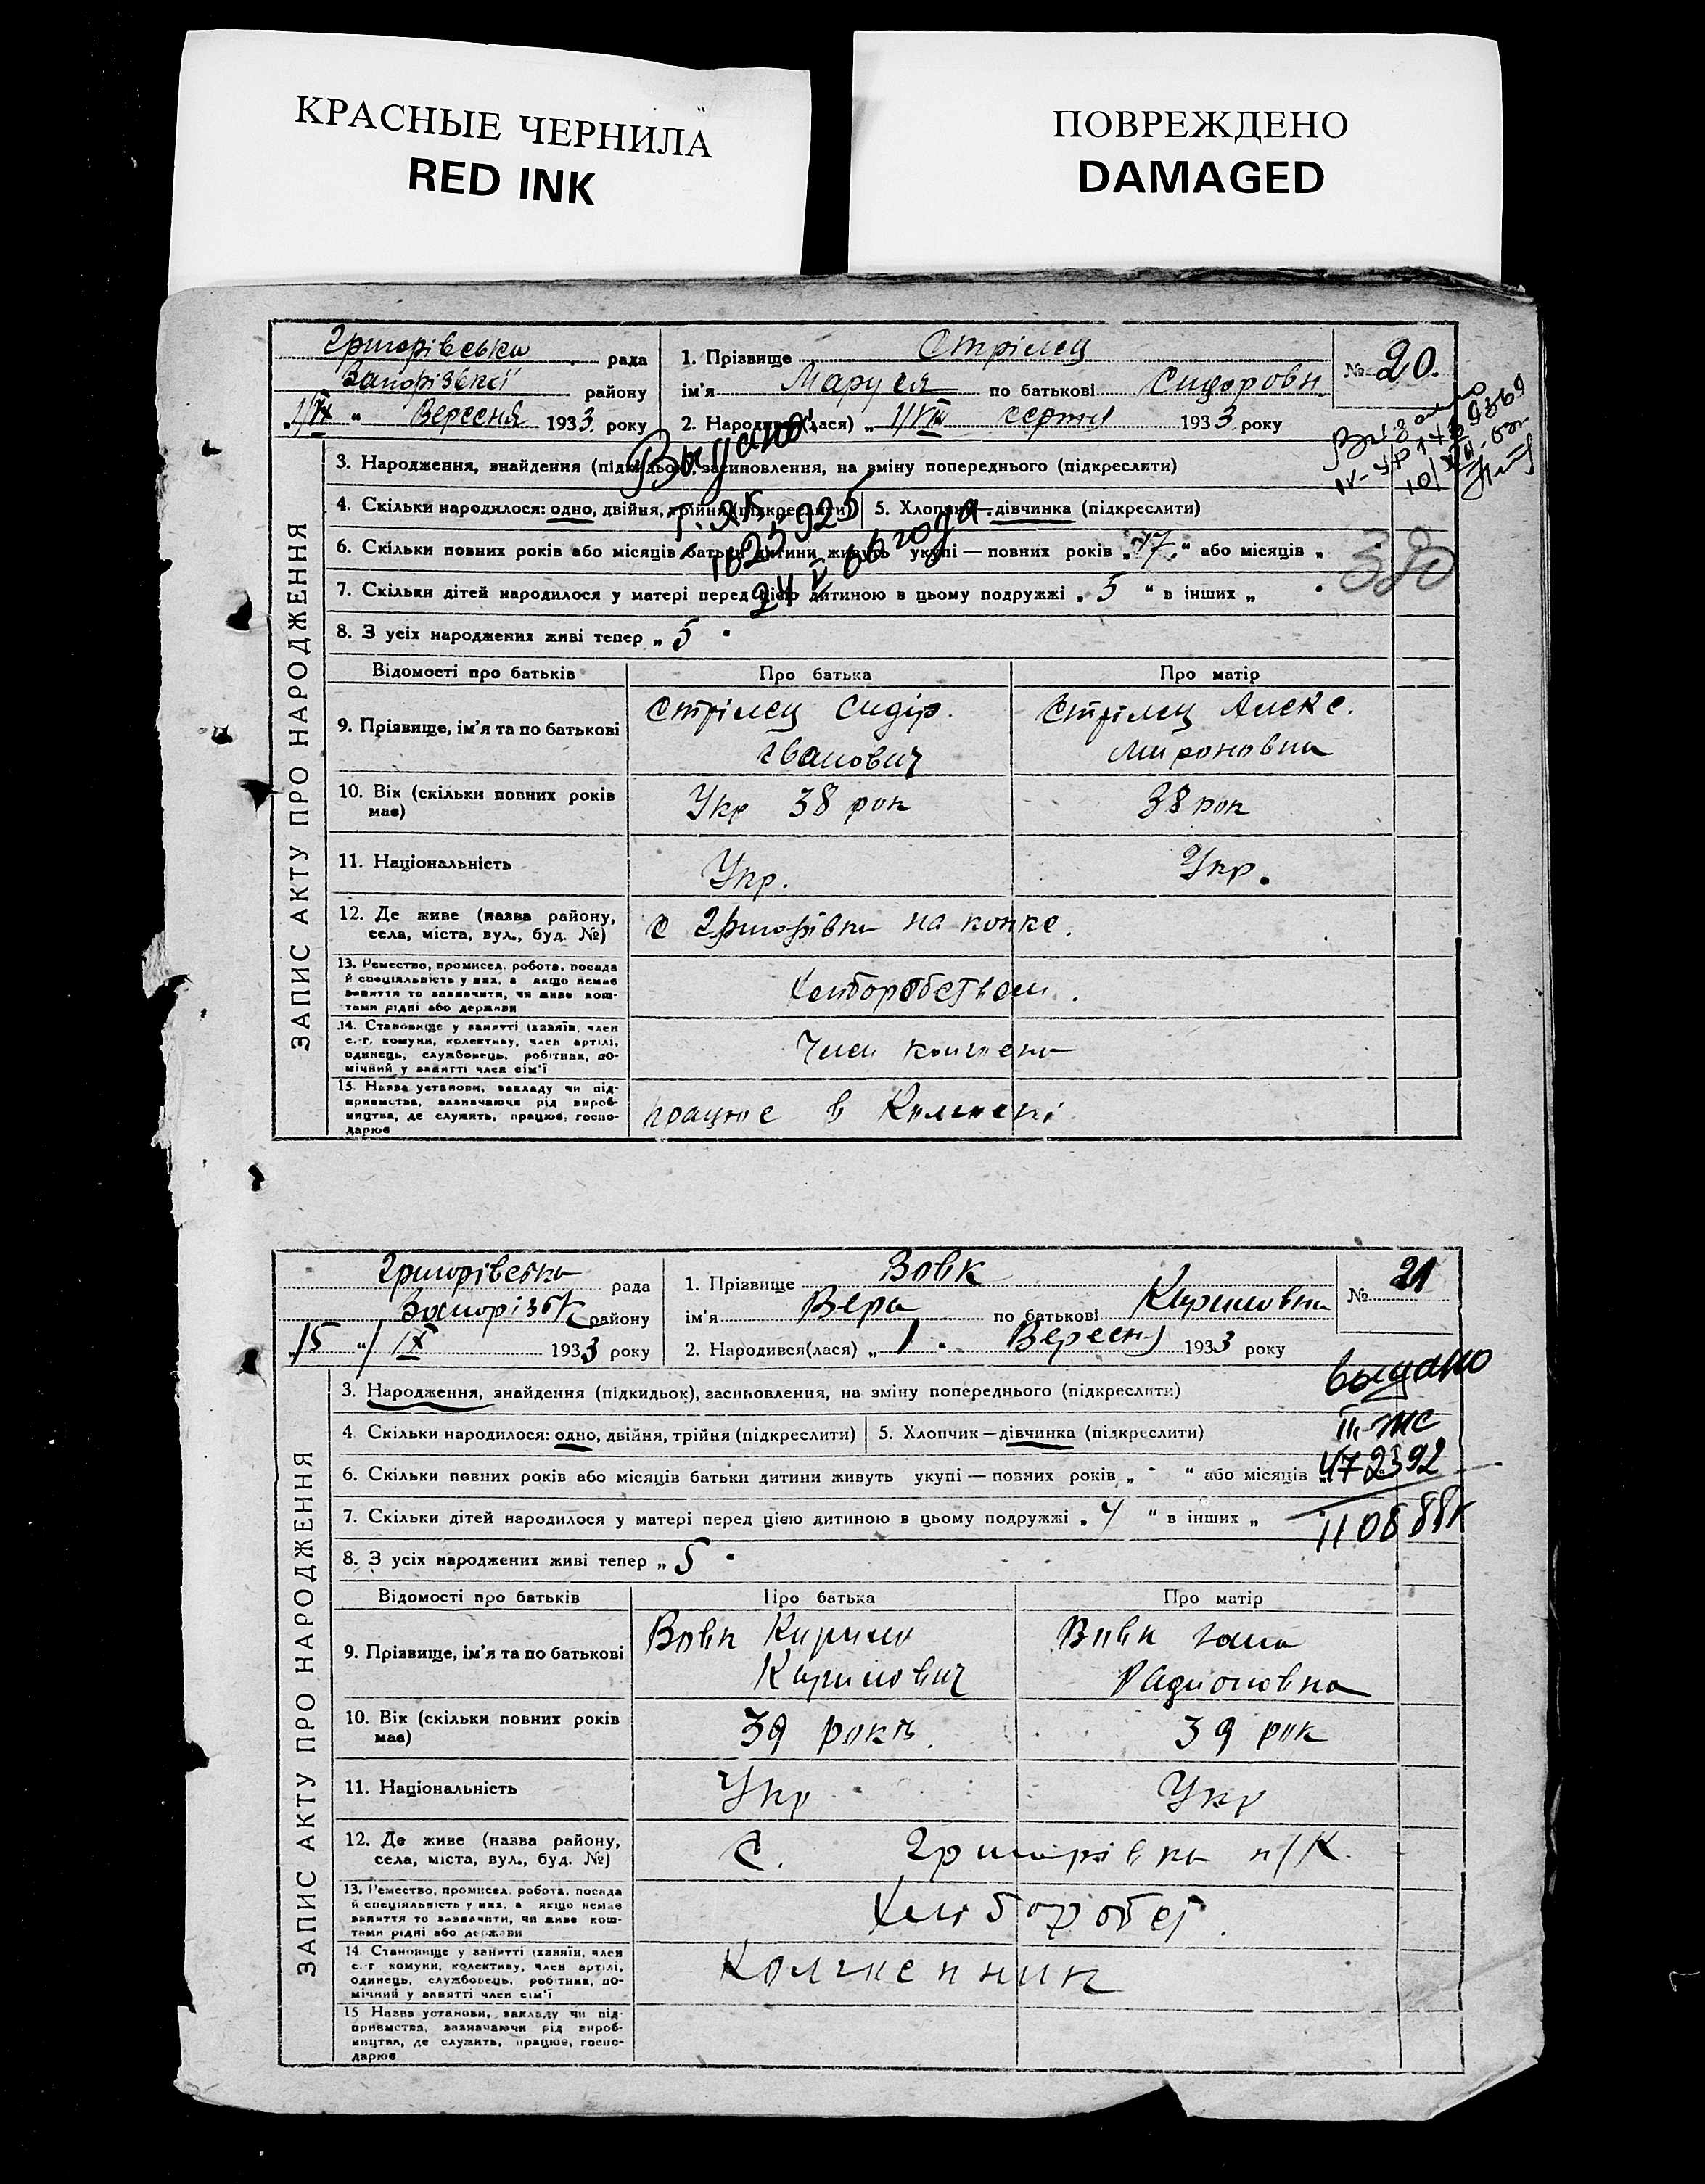 КРАСНЫЕ ЧЕРНИЛА
RED INK
ПОВРЕЖДЕНО
DAMAGED
ЗАПИС АКТУ ПРО НАРОДЖЕННЯ
Григорівська рада
Запорізької району
"1/IX" Вересня 1933 року
1. Прізвище Стрілец
ім'я Маруся по батькові Сидоровн
2. Народився(лася) "1/VIII серпня 1933 року
№ 20.
3. Народження, знайдення (підкидьок), засиновлення, на зміну попереднього (підкреслити)
Выдано
4. Скільки народилося: одно, двійня, трійня (підкреслити)
5. Хлопчик—дівчинка (підкреслити)
6. Скільки повних років або місяців батьки дитини живуть укупі — повних років "17" або місяців "
380
7. Скільки дітей народилося у матері перед цією дитиною в цьому подружжі "5" в інших "
8. З усіх народжених живі тепер "5"
Відомості про батьків Про батька Про матір
9. Прізвище, ім'я та по батькові
Стрілец Сидір. Іванович
Стрілец Алекс. Мироновна
10. Вік (скільки повних років має)
Укр 38 рок
38 рок
11. Національність
Укр.
Укр.
12. Де живе (назва району, села, міста, вул., буд. №)
с Григорівка на конке.
13. Ремество, промисел, робота, посада й спеціяльність у них, а якщо немає заняття то зазначити, чи живе коштами рідні або держави
Хліборобством.
14. Становище у занятті (хазяїн, член с.-г. комуни, колективу, член артілі, одинець, службовець, робітник, помічний у занятті член сім'ї
Член
15. Назва установи, закладу чи підприємства, зазначаючи рід виробництва, де служить, працює, господарює
працює в
ЗАПИС АКТУ ПРО НАРОДЖЕННЯ
Григорівська рада
Запорізьк району
"15" / IX 1933 року
1. Прізвище Вовк
ім'я Вера по батькові Кириловна
2. Народився(лася) "1" Вересня 1933 року
№ 21
3. Народження, знайдення (підкидьок), засиновлення, на зміну попереднього (підкреслити)
выдано
4 Скільки народилося: одно, двійня, трійня (підкреслити)
5. Хлопчик—дівчинка (підкреслити)
II-ЖС
6. Скільки повних років або місяців батьки дитини живуть укупі — повних років " - " або місяців "
472392
7. Скільки дітей народилося у матері перед цією дитиною в цьому подружжі "4" в інших "
8. З усіх народжених живі тепер "5"
Відомості про батьків Про батька Про матір
9. Прізвище, ім'я та по батькові
Вовк Кирило Кирилович
Вовк Радионовна
10. Вік (скільки повних років має)
39 років.
39 рок
11. Національність
Укр
Укр
12. Де живе (назва району, села, міста, вул., буд. №)
с. Григорівка н/К.
13. Ремество, промисел, робота, посада й спеціяльність у них, а якщо немає заняття то зазначити, чи живе коштами рідні або держави
Хлібороб
14. Становище у занятті (хазяїн, член с.-г комуни, колективу, член артілі, одинець, службовець, робітник, помічний у занятті член сім'ї
15 Назва установи, закладу чи підприємства, зазначаючи рід виробництва, де служить, працює, господарює